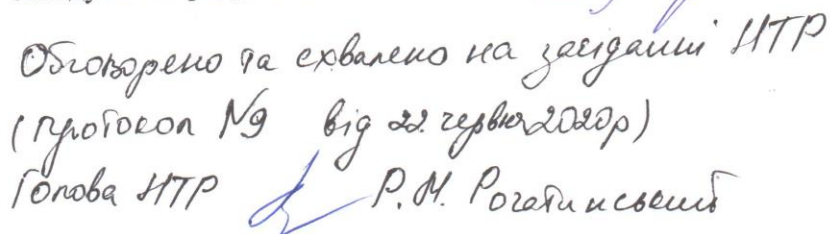 Обговорено та схвалено на засіданні НТР
(протокол №9 від 22 червня 2020р)
Голова НТР Р.М. Рогатинський